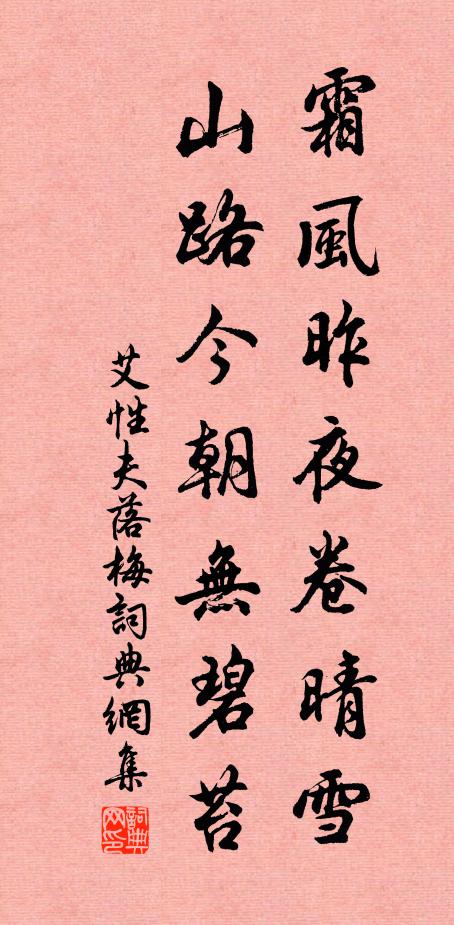 霜風昨夜卷晴雪
山路今朝無碧苔
艾性夫落梅詞典網集
詞典网印